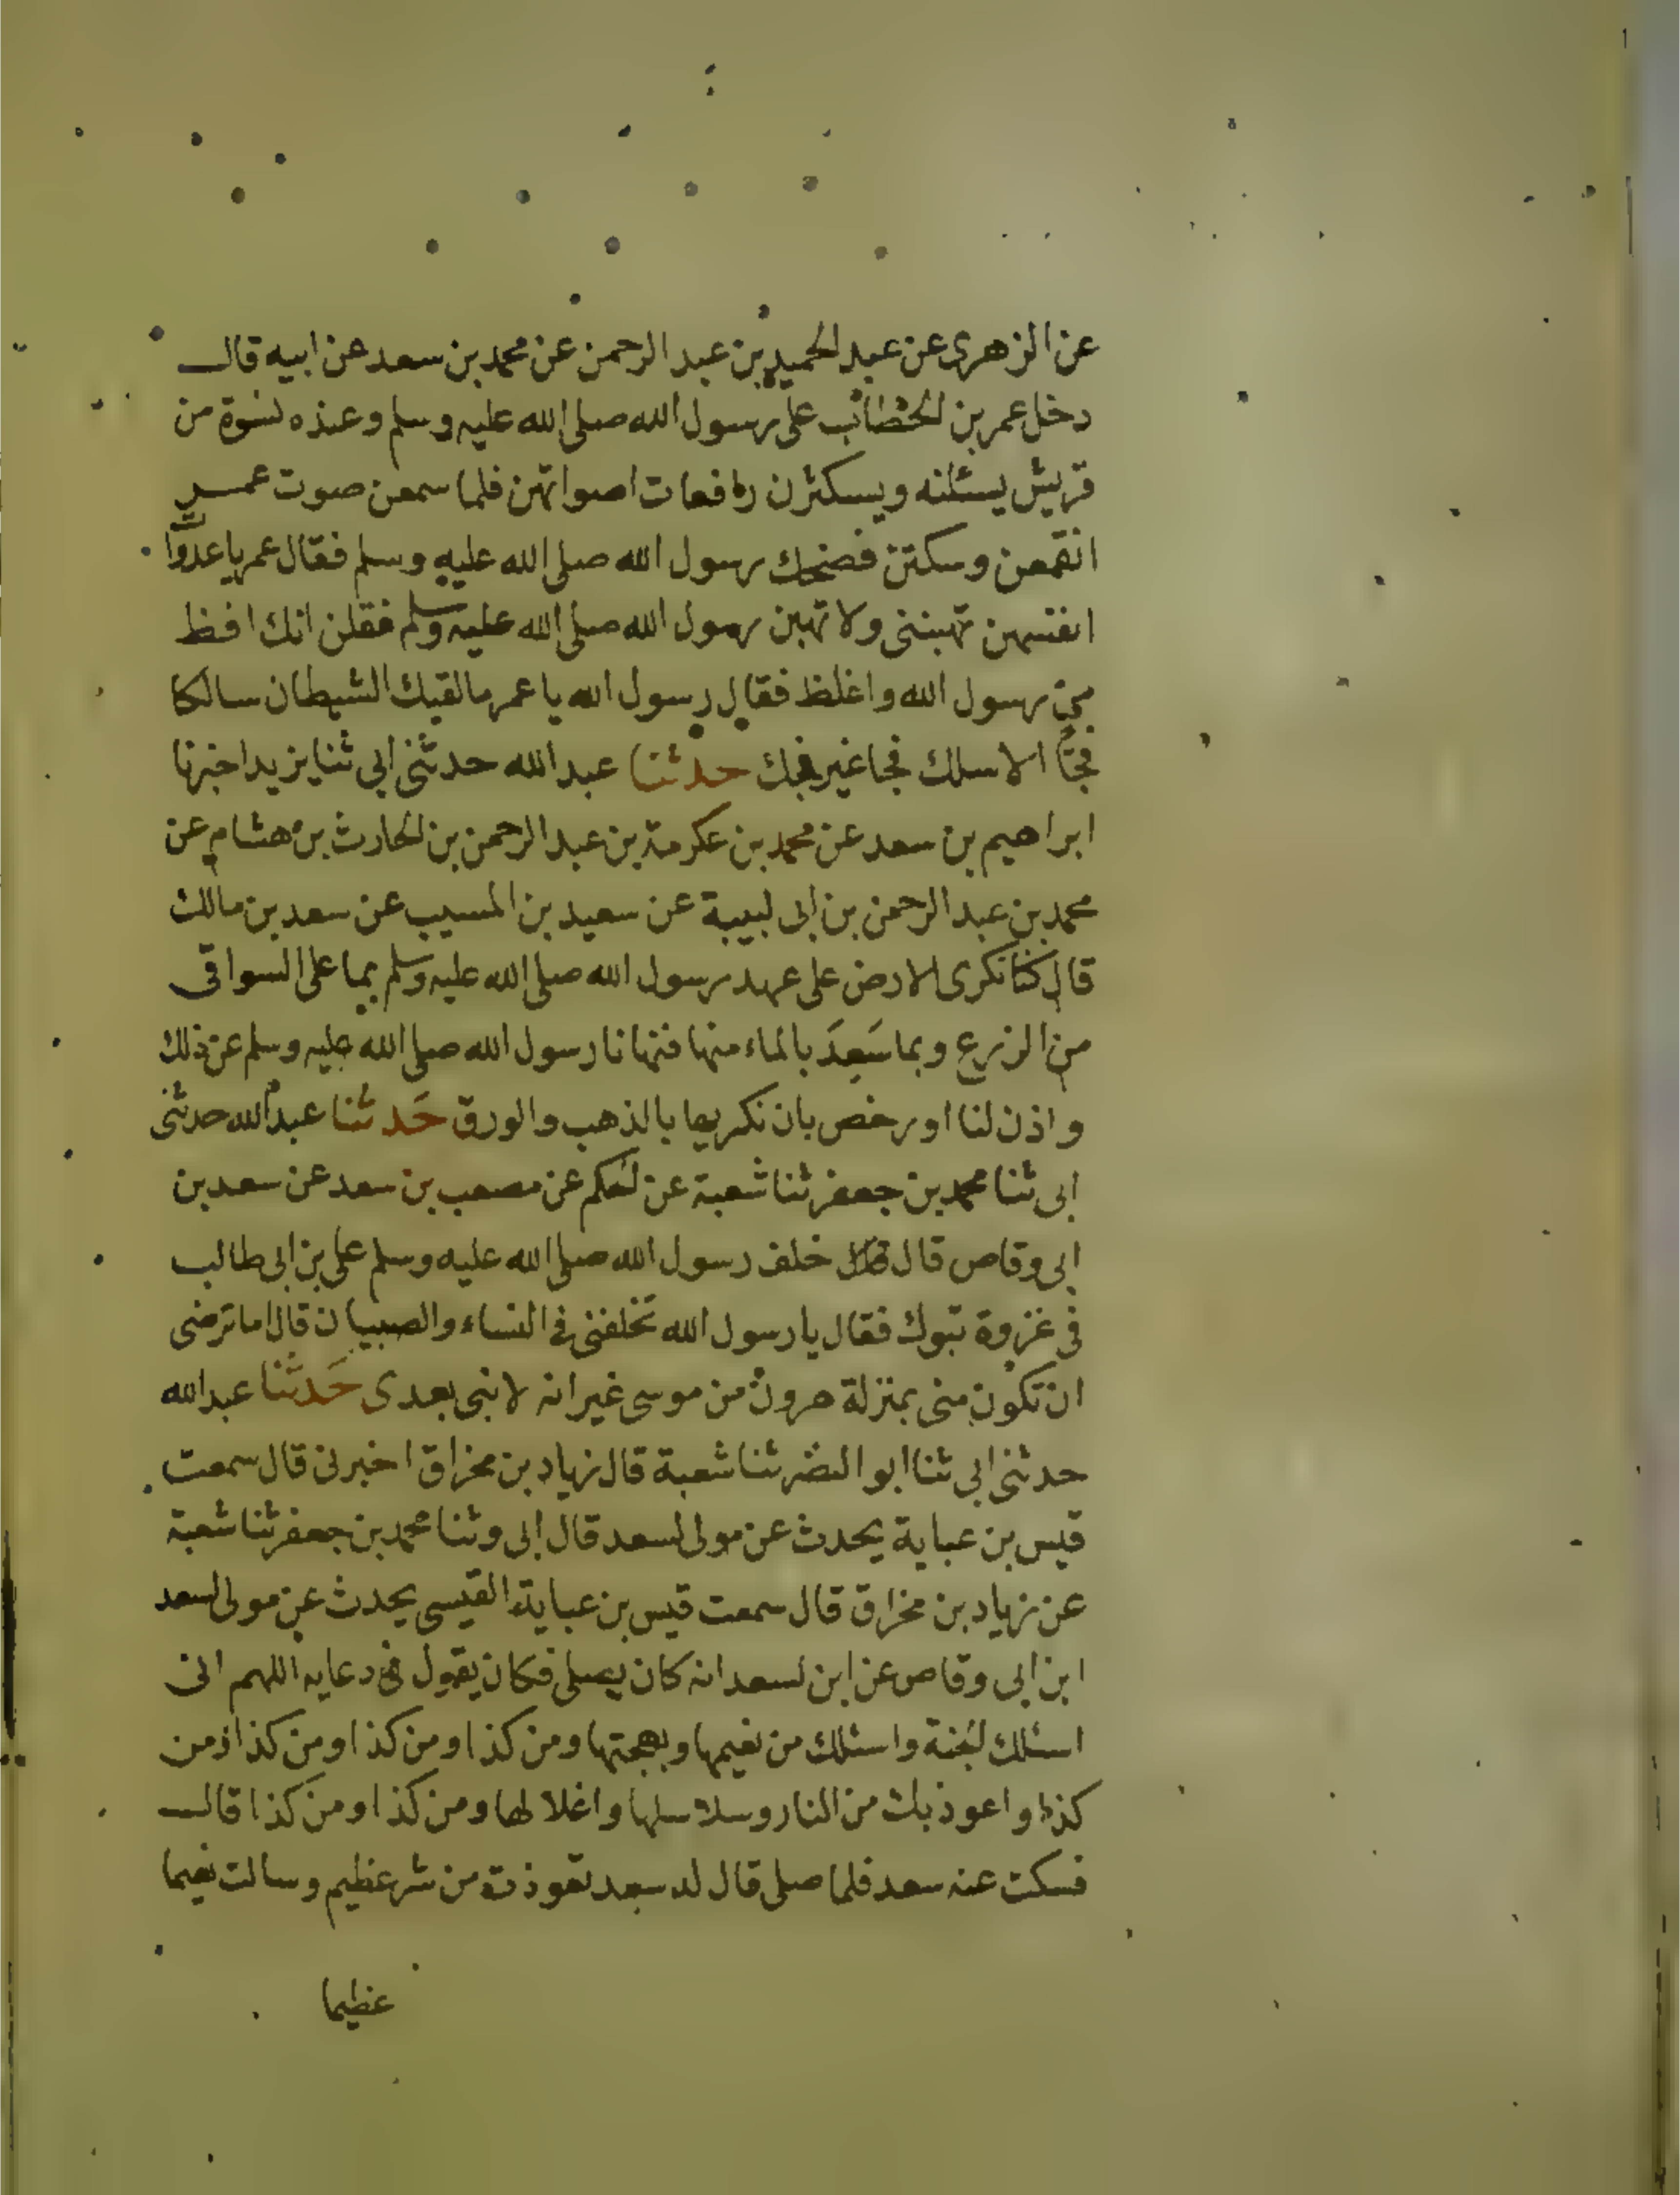 عن الزهرى عن عبد الحميد بن عبد الرحمن عن محمد بن سعد عن ابيه قال
دخل عمر بن الخطاب على رسول الله صلى الله عليه وسلم وعنده نسوة من
قريش يسئلنه ويسكثرن رافعات اصواتهن فلما سمعن صوت عمر
انقمعن وسكتن فضحك رسول الله صلى الله عليه وسلم فقال عمر يا عدوّات
انفسهن تهبننى ولا تهبن رسول الله صلى الله عليه وسلم فقلن انك افظ
من رسول الله واغلظ فقال رسول الله يا عمر ما لقيك الشيطان سالكا
فجّا الا سلك فجا غير فجك حدثنا عبد الله حدثنى ابى ثنا يزيد اخبرنا
ابراهيم بن سعد عن محمد بن عكرمة بن عبد الرحمن بن الحارث بن هشام عن
محمد بن عبد الرحمن بن ابى لبيبة عن سعيد بن المسيب عن سعد بن مالك
قال كنا نكرى الارض على عهد رسول الله صلى الله عليه وسلم بما على السواقى
من الزرع وبما سَعِدَ بالماء منها فنهانا رسول الله صلى الله عليه وسلم عن ذلك
واذن لنا او رخص بان نكريها بالذهب والورق حَدثنا عبد الله حدثنى
ابى ثنا محمد بن جعفر ثنا شعبة عن الحكم عن مصعب بن سعد عن سعد بن
ابى وقاص قال خلف رسول الله صلى الله عليه وسلم على بن ابى طالب
فى غزوة تبوك فقال يا رسول الله تخلفنى فى النساء والصبيان قال اما ترضى
ان تكون منى بمنزلة هرون من موسى غير انه لا نبى بعدى حَدثنا عبد الله
حدثنى ابى ثنا ابو النضر ثنا شعبة قال زياد بن مخراق اخبرنى قال سمعت
قيس بن عباية يحدث عن مولى لسعد قال ابى وثنا محمد بن جعفر ثنا شعبة
عن زياد بن مخراق قال سمعت قيس بن عباية القيسى يحدث عن مولى لسعد
ابن ابى وقاص عن ابن لسعد انه كان يصلى فكان يقول فى دعايه اللهم انى
اسئلك الجنة واسئلك من نعيمها وبهجتها ومن كذا ومن كذا ومن كذا ومن
كذا واعوذ بك من النار وسلاسلها واغلالها ومن كذا ومن كذا قال
فسكت عنه سعد فلما صلى قال له سعد تعوذت من شر عظيم وسالت نعيما
عظيما